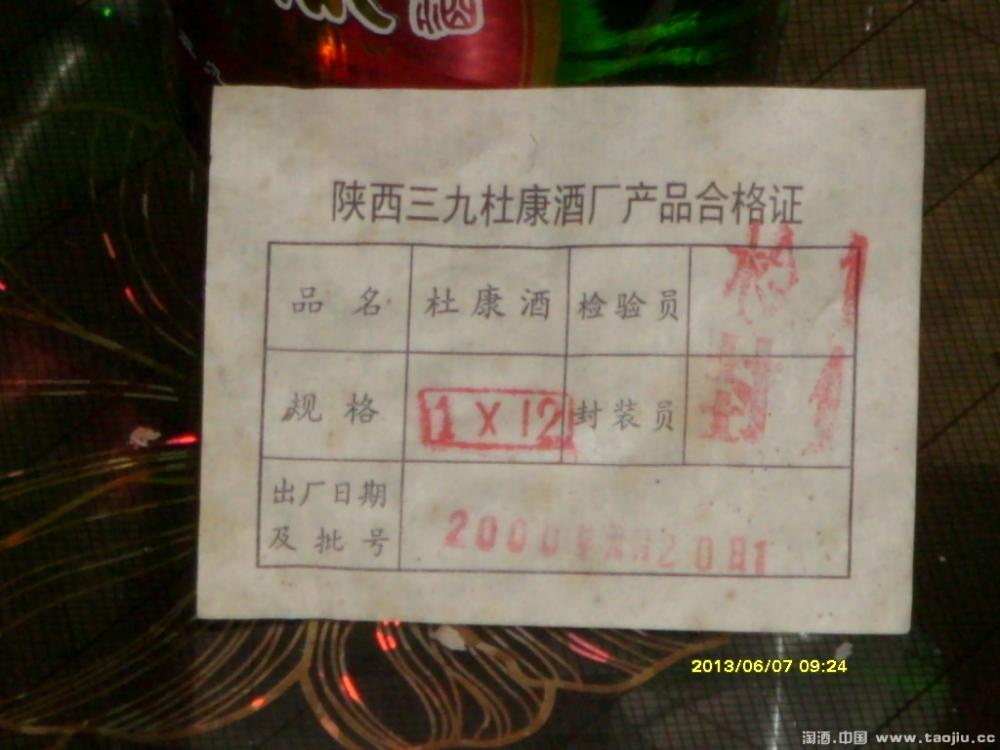 陕西三九杜康酒厂产品合格证
品名 杜康酒 检验员
规格 1X12 封装员 封1
出厂日期
及批号 2000年 月20日1
2013/06/07 09:24
淘酒.中国 www.taojiu.cc